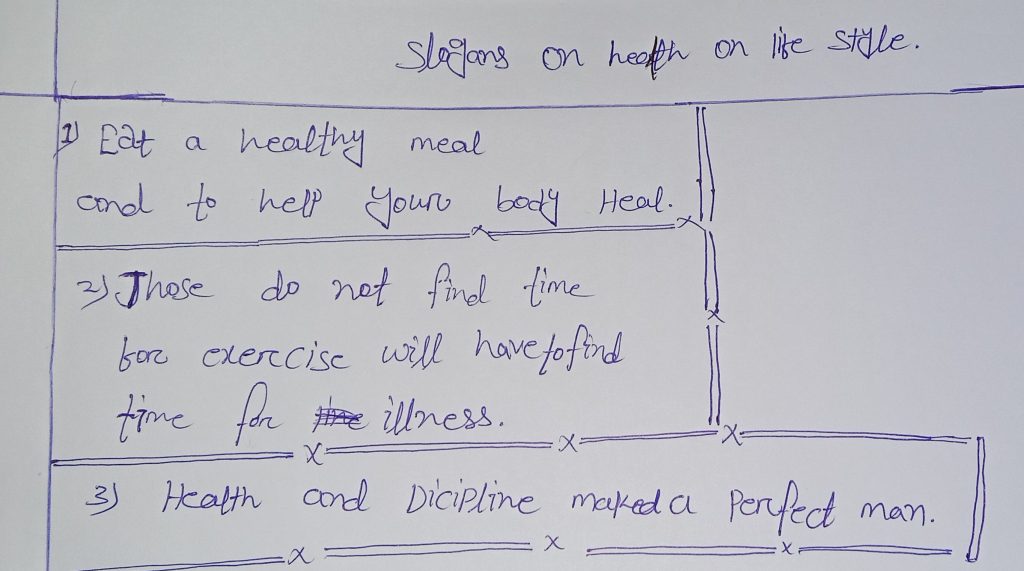 Slogans on health on life style.
1) Eat a healthy meal
and to help your body Heal.
2) Those do not find time
for exercise will have to find
time for illness.
3) Health and Dicipline maked a Perfect man.